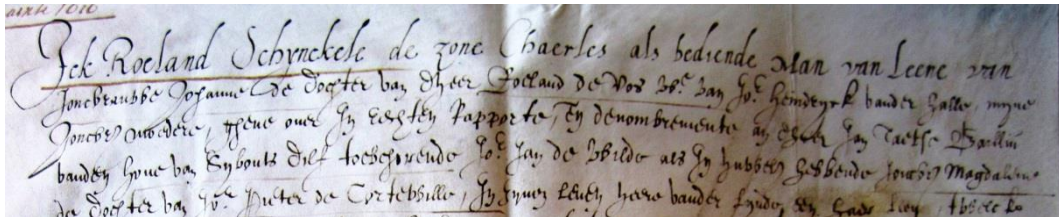 Ick Roeland Schynckele de zone Chaerles als bediende Man van Leene van
Joncvrauwe Johanne de dochter van dheer Roeland de Vos Wwe van Jor Heindryck vander Halle, myne
Joncvr moedere, gheve over In Rechten Rapporte, En denombremente an dheer Jan Baillu
vanden hove van Sybouts dilf toebehoorende Jor Jan de Wilde als In huwelick hebbende Joncvr Magdalene
de dochter van Jor Pieter de Cortewille, In zynen leven heere vander Lynde, een